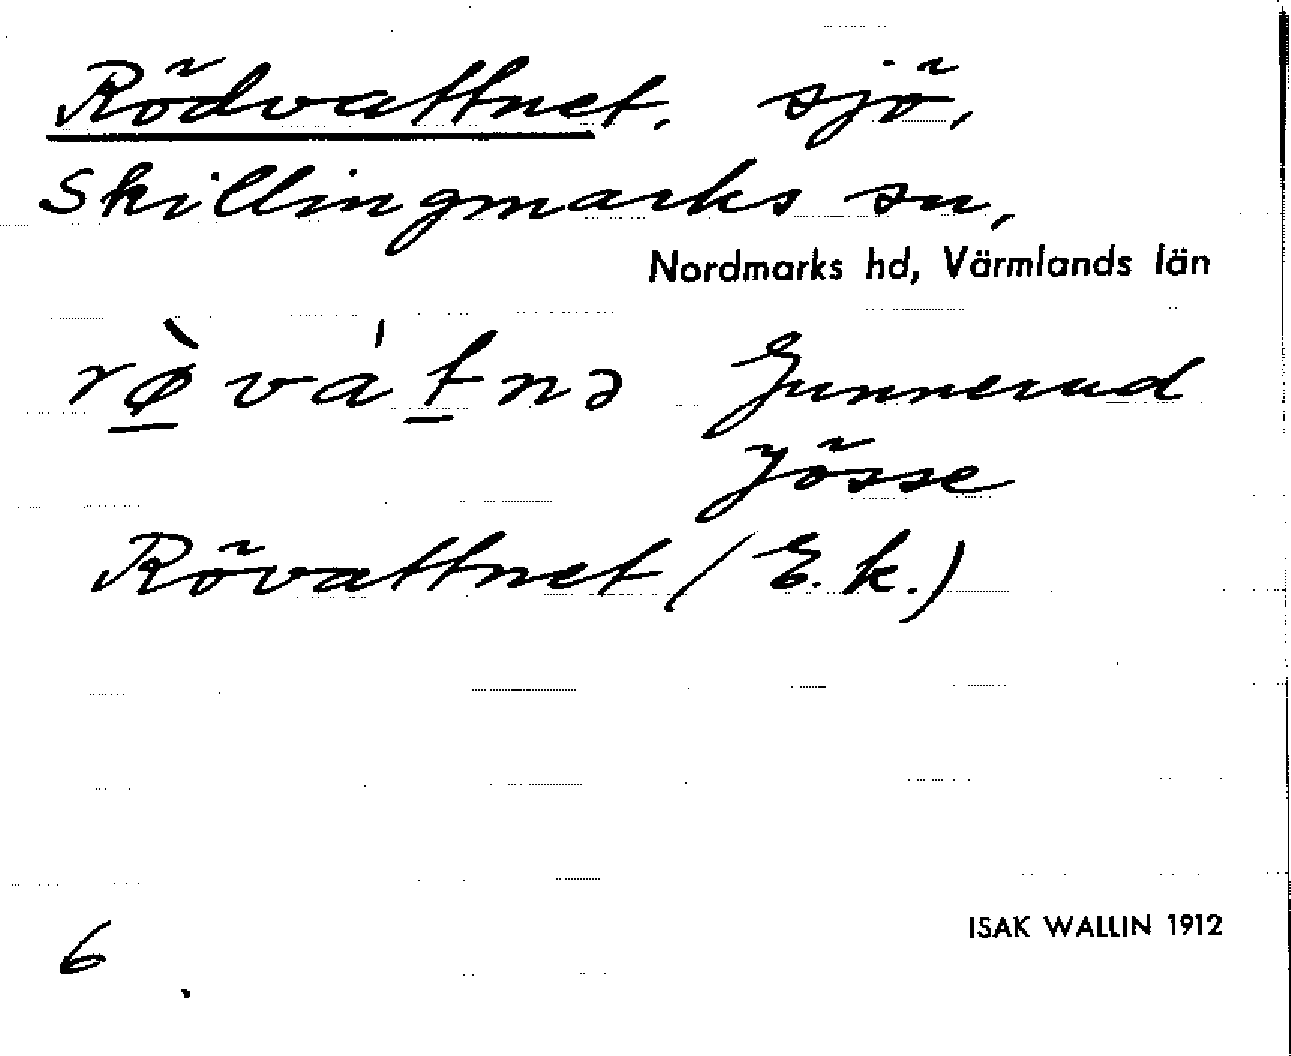 Rödvattnet, sjö,
Skillingmarks sn,
Nordmarks hd, Värmlands län
rø̱̀váṯnə Gunnerud
Jösse
Rövattnet (E.k.)
6
ISAK WALLIN 1912